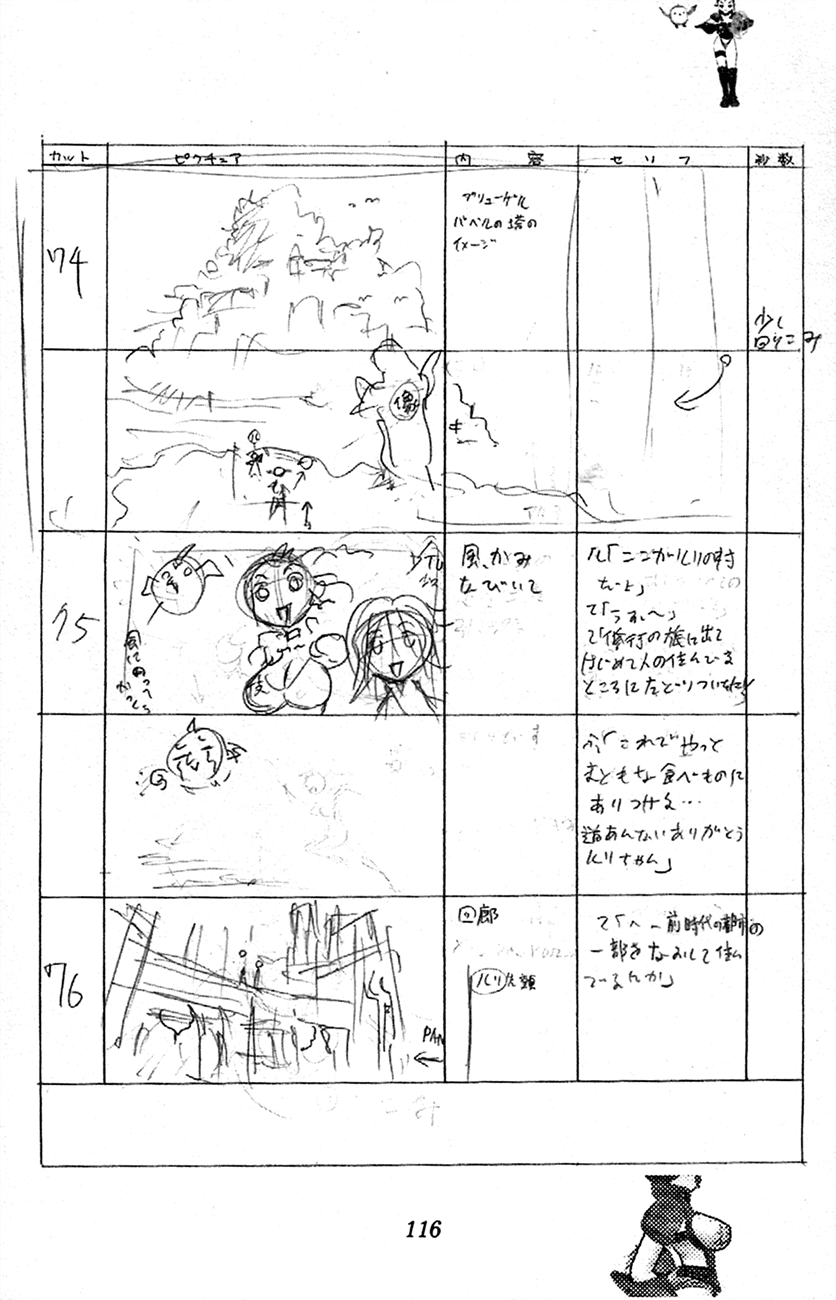 カット ピクチュア 内容 セリフ 秒数
74
ブリューゲル
バベルの塔の
イメージ
少し
回りこみ
像
75
風、かみ
なびいて
ル「ここがルリの村
だよ」
て「うぁ〜」
て「修行の旅に出て
はじめて人の住んでる
ところにたどりついたよ」
風にのってら
ふ「これでやっと
まともな食べものに
ありつける…
道あんないありがとう
ルリちゃん」
76
回廊
ルリ先頭
PAN
て「へ〜前時代の都市の
一部をなおして住ん
でいるんだ」
116